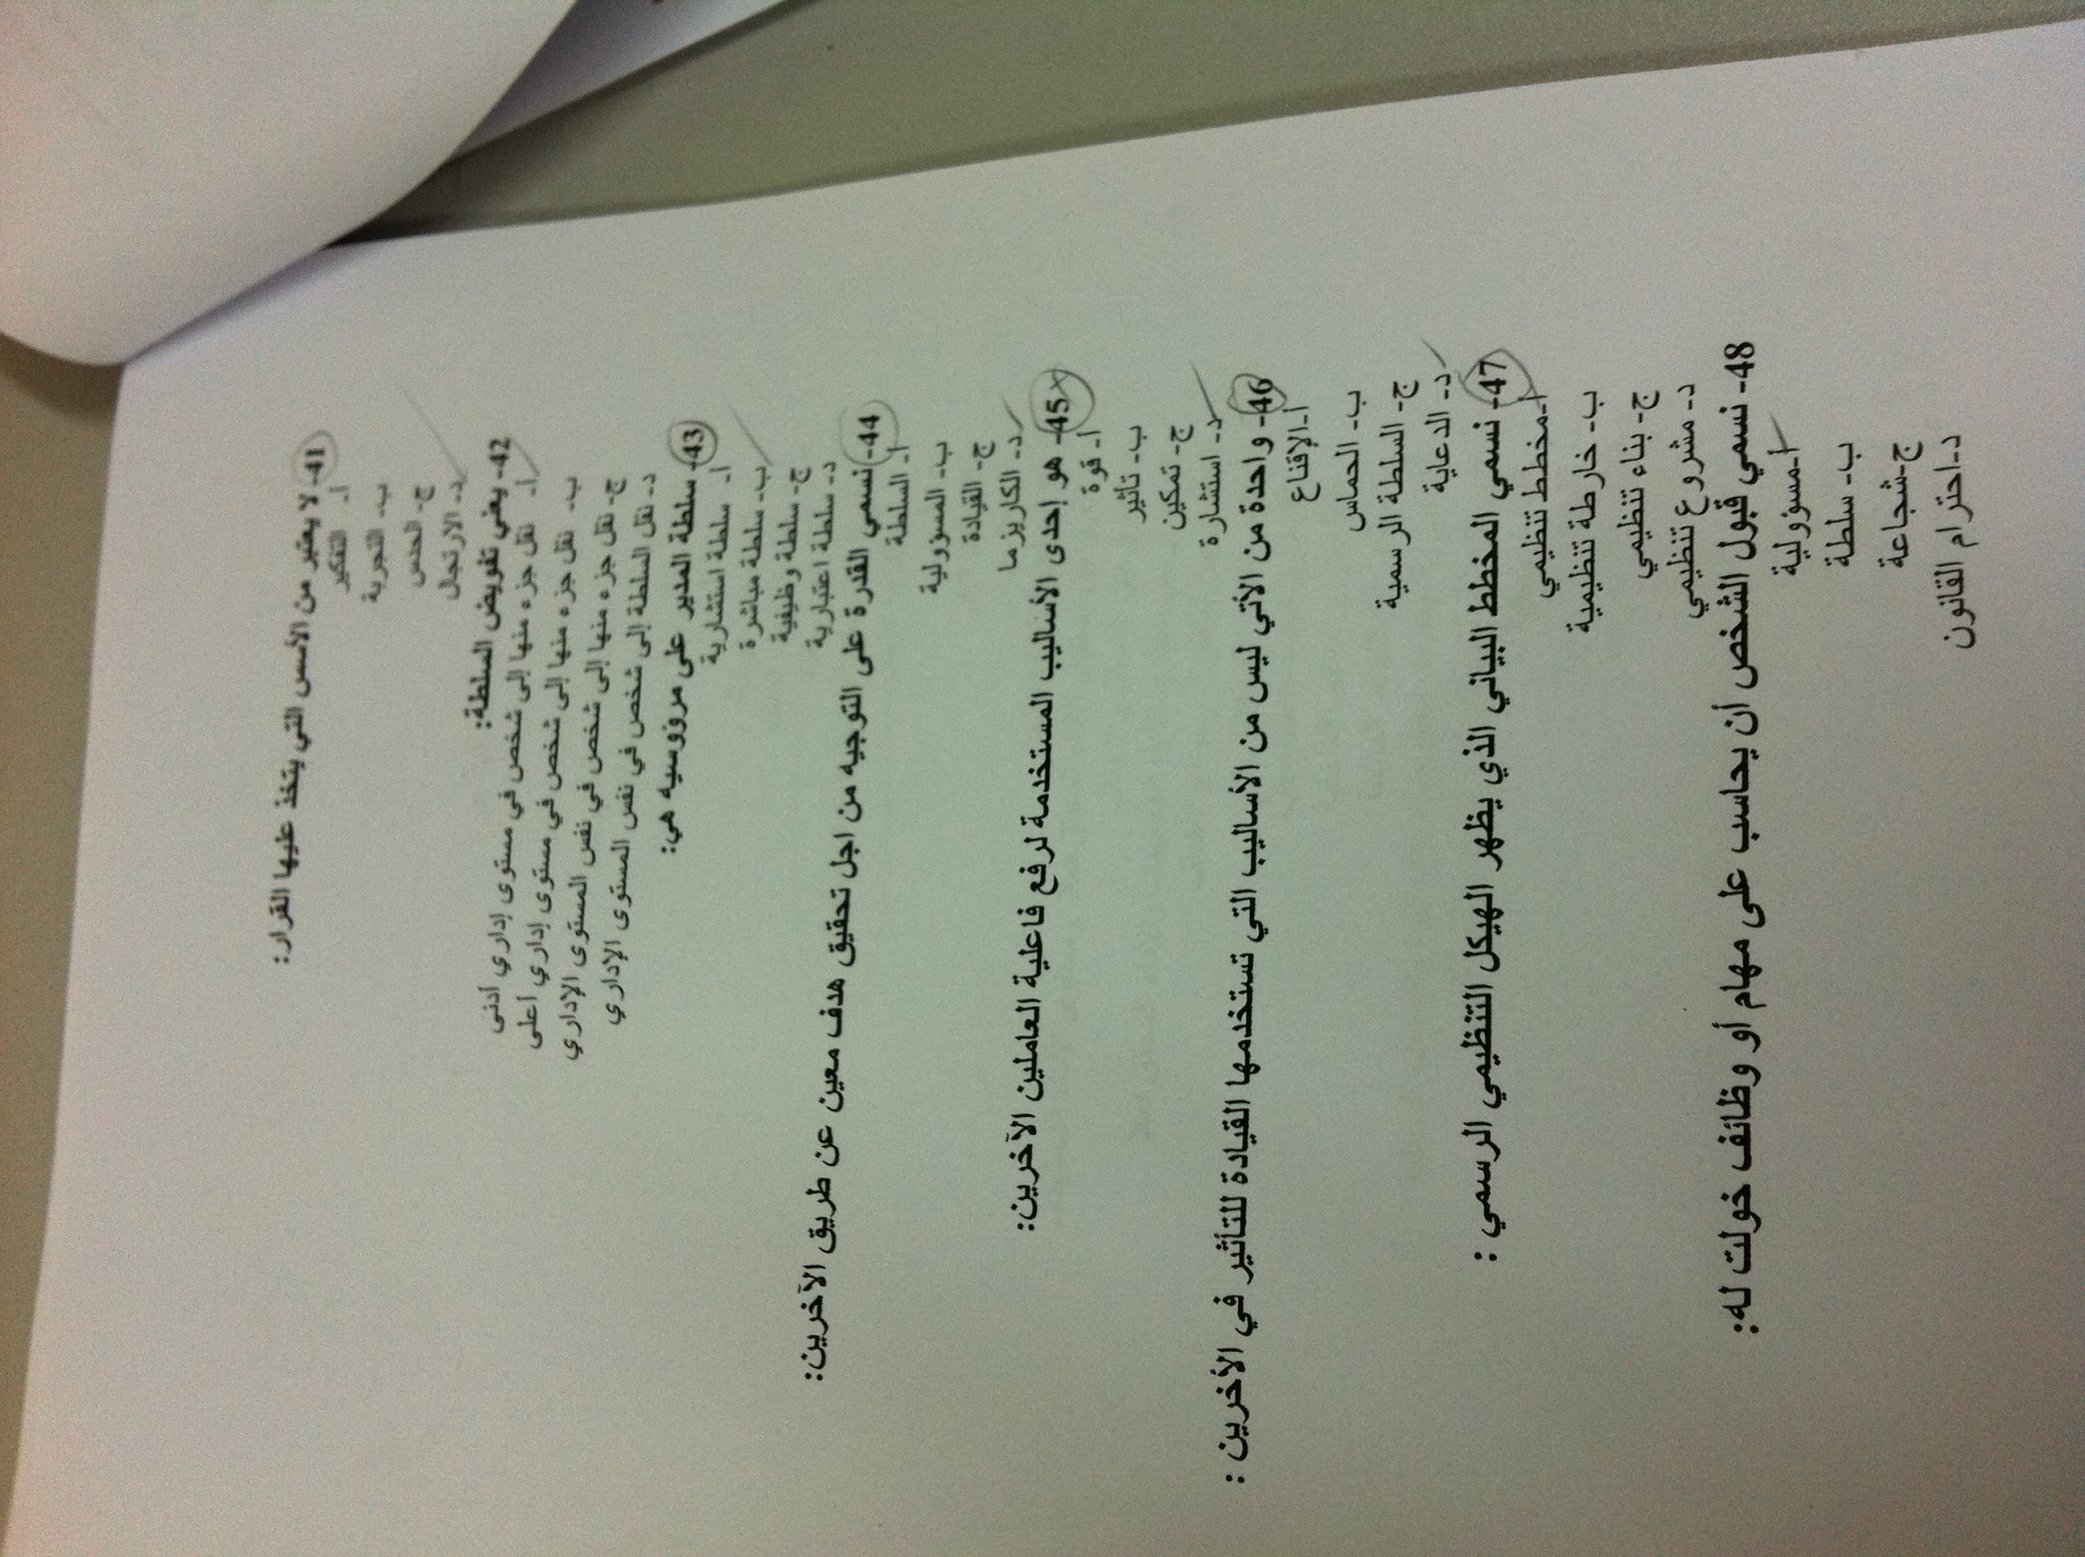 41- لا يعتبر من الأسس التي يتخذ عليها القرار:
أ- التفكير
ب- التجربة
ج- الحدس
د- الارتجال
42- يعني تفويض السلطة:
أ- نقل جزء منها إلى شخص في مستوى إداري أدنى
ب- نقل جزء منها إلى شخص في مستوى إداري أعلى
ج- نقل جزء منها إلى شخص في نفس المستوى الإداري
د- نقل السلطة إلى شخص في نفس المستوى الإداري
43- سلطة المدير على مرؤوسيه هي:
أ- سلطة استشارية
ب- سلطة مباشرة
ج- سلطة وظيفية
د- سلطة اعتبارية
44- نسمي القدرة على التوجيه من اجل تحقيق هدف معين عن طريق الآخرين:
أ- السلطة
ب- المسؤولية
ج- القيادة
د- الكاريزما
45- هو إحدى الأساليب المستخدمة لرفع فاعلية العاملين الآخرين:
أ- قوة
ب- تأثير
ج- تمكين
د- استشارة
46- واحدة من الأتي ليس من الأساليب التي تستخدمها القيادة للتأثير في الأخرين :
أ-الإقناع
ب- الحماس
ج- السلطة الرسمية
د- الدعاية
47- نسمي المخطط البياني الذي يظهر الهيكل التنظيمي الرسمي :
أ-مخطط تنظيمي
ب- خارطة تنظيمية
ج- بناء تنظيمي
د- مشروع تنظيمي
48- نسمي قبول الشخص أن يحاسب على مهام أو وظائف خولت له:
أ-مسؤولية
ب- سلطة
ج-شجاعة
د-احترام القانون